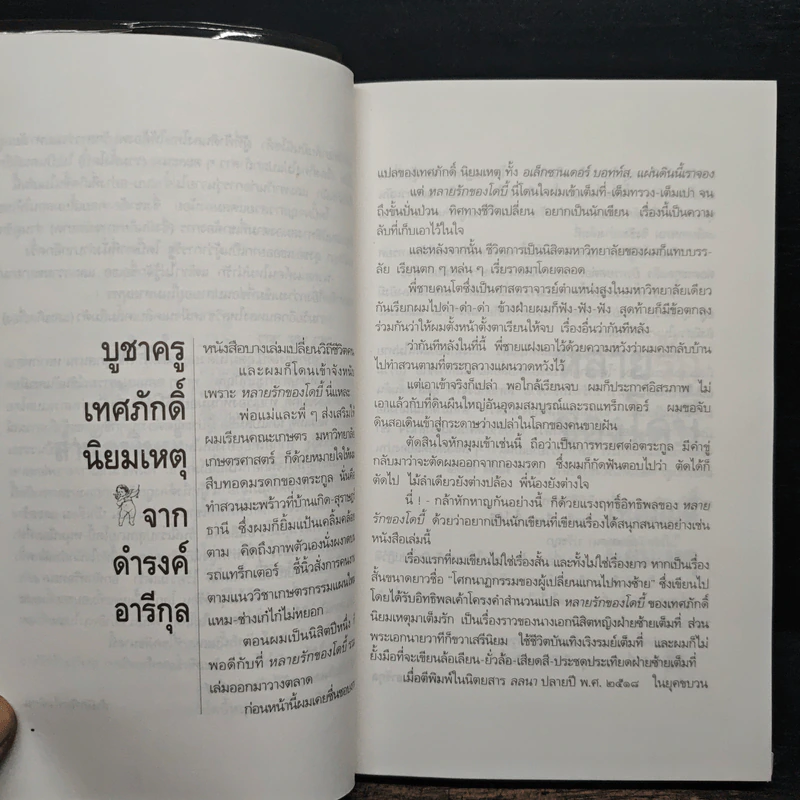 บูชาครู
เทศภักดิ์
นิยมเหตุ
จาก
ดำรงค์
อารีกุล
หนังสือบางเล่มเปลี่ยนวิถีชีวิตคน
และผมก็โดนเข้าจังหนั
เพราะ หลายรักของโดบี้ นี่แหละ
พ่อแม่และพี่ ๆ ส่งเสริมให้
ผมเรียนคณะเกษตร มหาวิทยาลัย
เกษตรศาสตร์ ก็ด้วยหมายใจให้ผม
สืบทอดมรดกของตระกูล นั่นคือ
ทำสวนมะพร้าวที่บ้านเกิด-สุราษฎร์
ธานี ซึ่งผมก็ยิ้มแป้นเคลิ้มคล้อย
ตาม คิดถึงภาพตัวเองนั่งผงาดบน
รถแทร็กเตอร์ ชี้นิ้วสั่งการคนงาน
ตามแนววิชาเกษตรกรรมแผนใหม่
แหม-ช่างเก๋ไก๋ไม่หยอก
ตอนผมเป็นนิสิตปีหนึ่ง
พอดีกับที่ หลายรักของโดบี้
เล่มออกมาวางตลาด
ก่อนหน้านี้ผมเคยชื่นชอบ
แปลของเทศภักดิ์ นิยมเหตุ ทั้ง อเล็กซานเดอร์ บอทท์ส, แผ่นดินนี้เราจอง
แต่ หลายรักของโดบี้ นี่โดนใจผมเข้าเต็มที่-เต็มทรวง-เต็มเปา จน
ถึงขั้นปั่นป่วน ทิศทางชีวิตเปลี่ยน อยากเป็นนักเขียน เรื่องนี้เป็นความ
ลับที่เก็บเอาไว้ในใจ
และหลังจากนั้น ชีวิตการเป็นนิสิตมหาวิทยาลัยของผมก็แทบบรร-
ลัย เรียนตก ๆ หล่น ๆ เรี่ยราดมาโดยตลอด
พี่ชายคนโตซึ่งเป็นศาสตราจารย์ตำแหน่งสูงในมหาวิทยาลัยเดียว
กันเรียกผมไปด่า-ด่า-ด่า ข้างฝ่ายผมก็ฟัง-ฟัง-ฟัง สุดท้ายก็มีข้อตกลง
ร่วมกันว่าให้ผมตั้งหน้าตั้งตาเรียนให้จบ เรื่องอื่นว่ากันทีหลัง
ว่ากันทีหลังในที่นี้ พี่ชายแฝงเอาไว้ด้วยความหวังว่าผมคงกลับบ้าน
ไปทำสวนตามที่ตระกูลวางแผนวาดหวังไว้
แต่เอาเข้าจริงก็เปล่า พอใกล้เรียนจบ ผมก็ประกาศอิสรภาพ ไม่
เอาแล้วกับที่ดินผืนใหญ่อันอุดมสมบูรณ์และรถแทร็กเตอร์ ผมขอจับ
ดินสอเดินเข้าสู่กระดาษว่างเปล่าในโลกของคนขายฝัน
ตัดสินใจหักมุมเข้าเช่นนี้ ถือว่าเป็นการทรยศต่อตระกูล มีคำขู่
กลับมาว่าจะตัดผมออกจากกองมรดก ซึ่งผมก็กัดฟันตอบไปว่า ตัดได้ก็
ตัดไป ไม้ลำเดียวยังต่างปล้อง พี่น้องยังต่างใจ
นี่ ! - กล้าหักหาญกันอย่างนี้ ก็ด้วยแรงฤทธิ์อิทธิพลของ หลาย
รักของโดบี้ ด้วยว่าอยากเป็นนักเขียนที่เขียนเรื่องได้สนุกสนานอย่างเช่น
หนังสือเล่มนี้
เรื่องแรกที่ผมเขียนไม่ใช่เรื่องสั้น และทั้งไม่ใช่เรื่องยาว หากเป็นเรื่อง
สั้นขนาดยาวชื่อ "โศกนาฏกรรมของผู้เปลี่ยนแกนไปทางซ้าย" ซึ่งเขียนไป
โดยได้รับอิทธิพลเค้าโครงคำสำนวนแปล หลายรักของโดบี้ ของเทศภักดิ์
นิยมเหตุมาเต็มรัก เป็นเรื่องราวของนางเอกนิสิตหญิงฝ่ายซ้ายเต็มที่ ส่วน
พระเอกนายวาทีก็ขวาเสรีนิยม ใช้ชีวิตบันเทิงเริงรมย์เต็มที่ และผมก็ไม่
ยั้งมือที่จะเขียนล้อเลียน-ยั่วล้อ-เสียดสี-ประชดประเทียดฝ่ายซ้ายเต็มที่
เมื่อตีพิมพ์ในนิตยสาร ลลนา ปลายปี พ.ศ. ๒๕๑๘ ในยุคขบวน